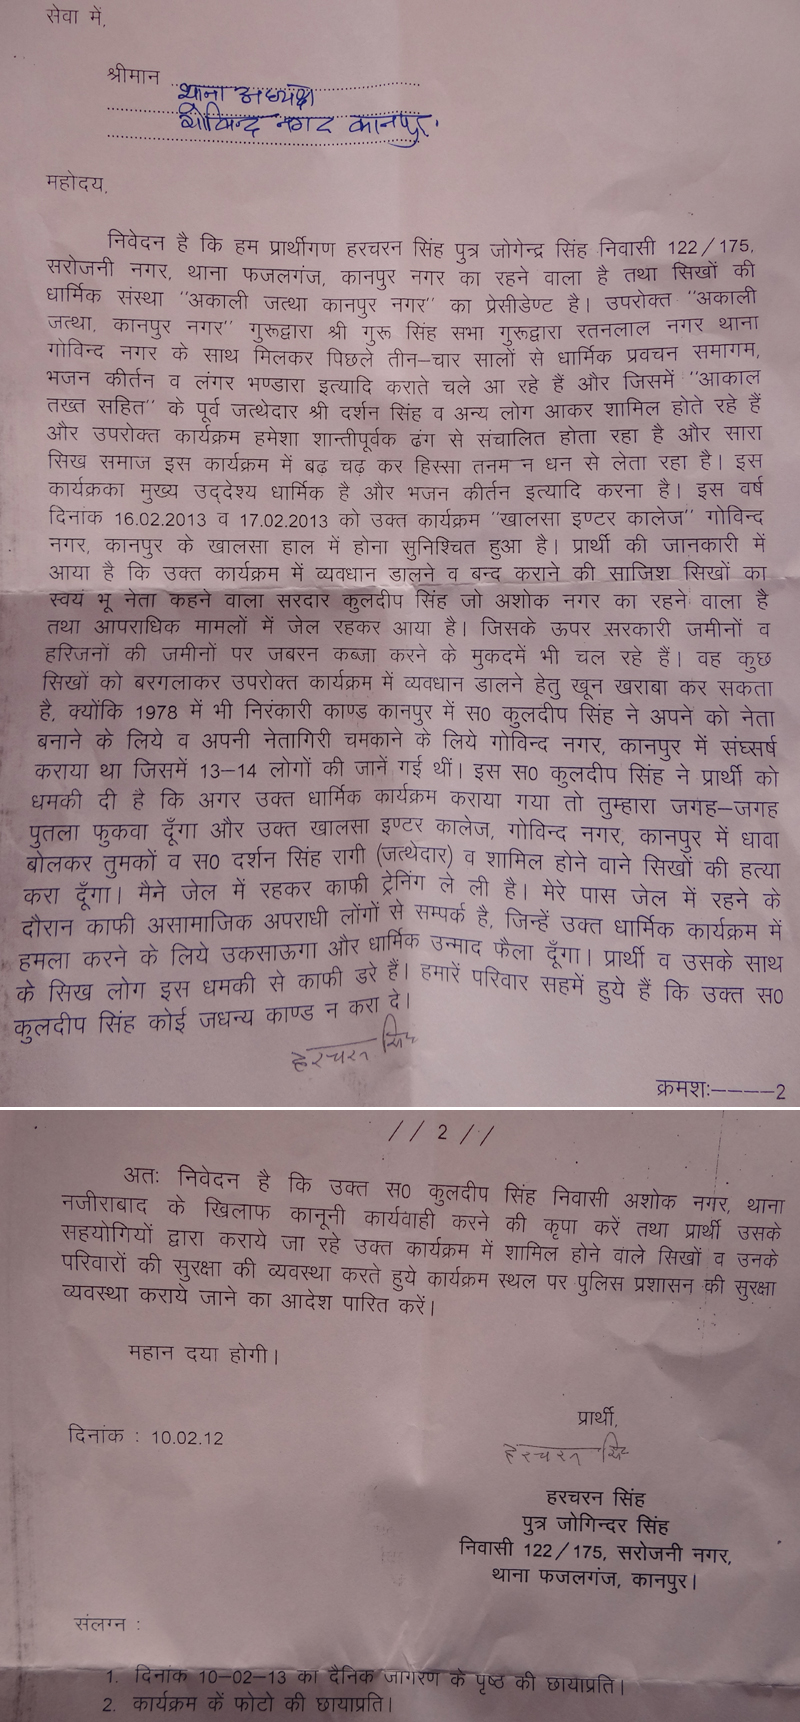 सेवा में,
श्रीमान थाना अध्यक्ष
गोविन्द नगर कानपुर.
महोदय,
निवेदन है कि हम प्रार्थीगण हरचरन सिंह पुत्र जोगेन्द्र सिंह निवासी 122/175,
सरोजनी नगर, थाना फजलगंज, कानपुर नगर का रहने वाला है तथा सिखों की
धार्मिक संस्था "अकाली जत्था कानपुर नगर" का प्रेसीडेण्ट है। उपरोक्त "अकाली
जत्था, कानपुर नगर" गुरूद्वारा श्री गुरू सिंह सभा गुरूद्वारा रतनलाल नगर थाना
गोविन्द नगर के साथ मिलकर पिछले तीन–चार सालों से धार्मिक प्रवचन समागम,
भजन कीर्तन व लंगर भण्डारा इत्यादि कराते चले आ रहे हैं और जिसमें "आकाल
तख्त सहित" के पूर्व जत्थेदार श्री दर्शन सिंह व अन्य लोग आकर शामिल होते रहे हैं
और उपरोक्त कार्यक्रम हमेशा शान्तीपूर्वक ढंग से संचालित होता रहा है और सारा
सिख समाज इस कार्यक्रम में बढ़ चढ़ कर हिस्सा तनम न धन से लेता रहा है। इस
कार्यक्रका मुख्य उद्देश्य धार्मिक है और भजन कीर्तन इत्यादि करना है। इस वर्ष
दिनांक 16.02.2013 व 17.02.2013 को उक्त कार्यक्रम "खालसा इण्टर कालेज" गोविन्द
नगर, कानपुर के खालसा हाल में होना सुनिश्चित हुआ है। प्रार्थी की जानकारी में
आया है कि उक्त कार्यक्रम में व्यवधान डालने व बन्द कराने की साजिश सिखों का
स्वयं भू नेता कहने वाला सरदार कुलदीप सिंह जो अशोक नगर का रहने वाला है
तथा आपराधिक मामलों में जेल रहकर आया है। जिसके ऊपर सरकारी जमीनों व
हरिजनों की जमीनों पर जबरन कब्जा करने के मुकदमें भी चल रहे हैं। वह कुछ
सिखों को बरगलाकर उपरोक्त कार्यक्रम में व्यवधान डालने हेतु खून खराबा कर सकता
है, क्योंकि 1978 में भी निरंकारी काण्ड कानपुर में स0 कुलदीप सिंह ने अपने को नेता
बनाने के लिये व अपनी नेतागिरी चमकाने के लिये गोविन्द नगर, कानपुर में संघ्सर्ष
कराया था जिसमें 13–14 लोगों की जानें गई थीं। इस स0 कुलदीप सिंह ने प्रार्थी को
धमकी दी है कि अगर उक्त धार्मिक कार्यक्रम कराया गया तो तुम्हारा जगह–जगह
पुतला फुकवा दूँगा और उक्त खालसा इण्टर कालेज, गोविन्द नगर, कानपुर में धावा
बोलकर तुमकों व स0 दर्शन सिंह रागी (जत्थेदार) व शामिल होने वाने सिखों की हत्या
करा दूँगा। मैने जेल में रहकर काफी ट्रेनिंग ले ली है। मेरे पास जेल में रहने के
दौरान काफी असामाजिक अपराधी लोंगों से सम्पर्क है, जिन्हें उक्त धार्मिक कार्यक्रम में
हमला करने के लिये उकसाऊगा और धार्मिक उन्माद फैला दूँगा। प्रार्थी व उसके साथ
के सिख लोग इस धमकी से काफी डरे हैं। हमारें परिवार सहमें हुये हैं कि उक्त स0
कुलदीप सिंह कोई जधन्य काण्ड न करा दे।
हरचरन सिंह
क्रमशः––––2
//2//
अतः निवेदन है कि उक्त स0 कुलदीप सिंह निवासी अशोक नगर, थाना
नजीराबाद के खिलाफ कानूनी कार्यवाही करने की कृपा करें तथा प्रार्थी उसके
सहयोगियों द्वारा कराये जा रहे उक्त कार्यक्रम में शामिल होने वाले सिखों व उनके
परिवारों की सुरक्षा की व्यवस्था करते हुये कार्यक्रम स्थल पर पुलिस प्रशासन की सुरक्षा
व्यवस्था कराये जाने का आदेश पारित करें।
महान दया होगी।
प्रार्थी,
दिनांक : 10.02.12
हरचरन सिंह
हरचरन सिंह
पुत्र जोगिन्दर सिंह
निवासी 122/175, सरोजनी नगर,
थाना फजलगंज, कानपुर।
संलग्न :
1. दिनांक 10–02–13 का दैनिक जागरण के पृष्ठ की छायाप्रति।
2. कार्यक्रम कें फोटो की छायाप्रति।